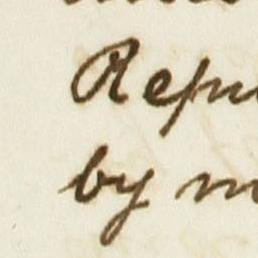 Repu
by m